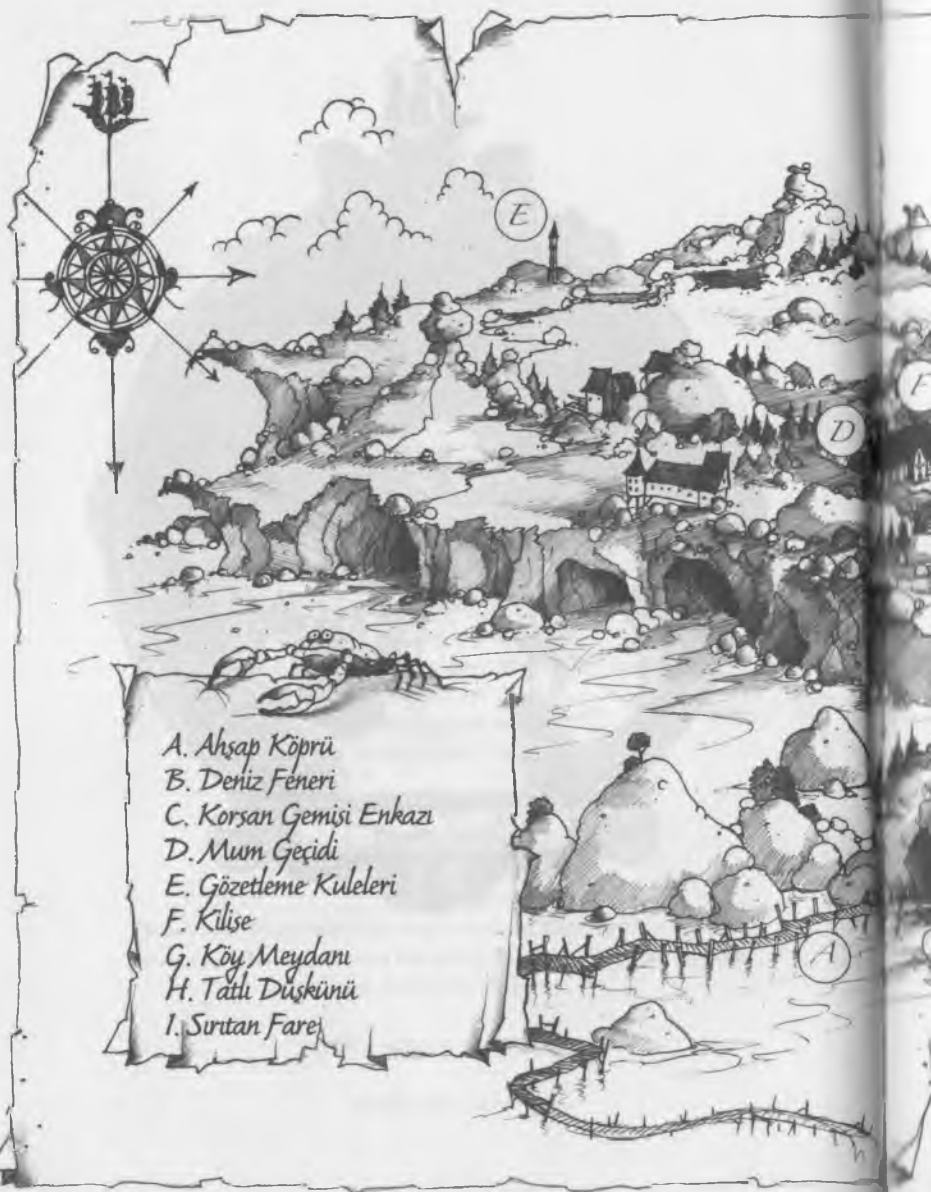 E
F
D
A. Ahşap Köprü
B. Deniz Feneri
C. Korsan Gemisi Enkazı
D. Mum Geçidi
E. Gözetleme Kuleleri
F. Kilise
G. Köy Meydanı
H. Tatlı Düşkünü
I. Sırıtan Fare
A